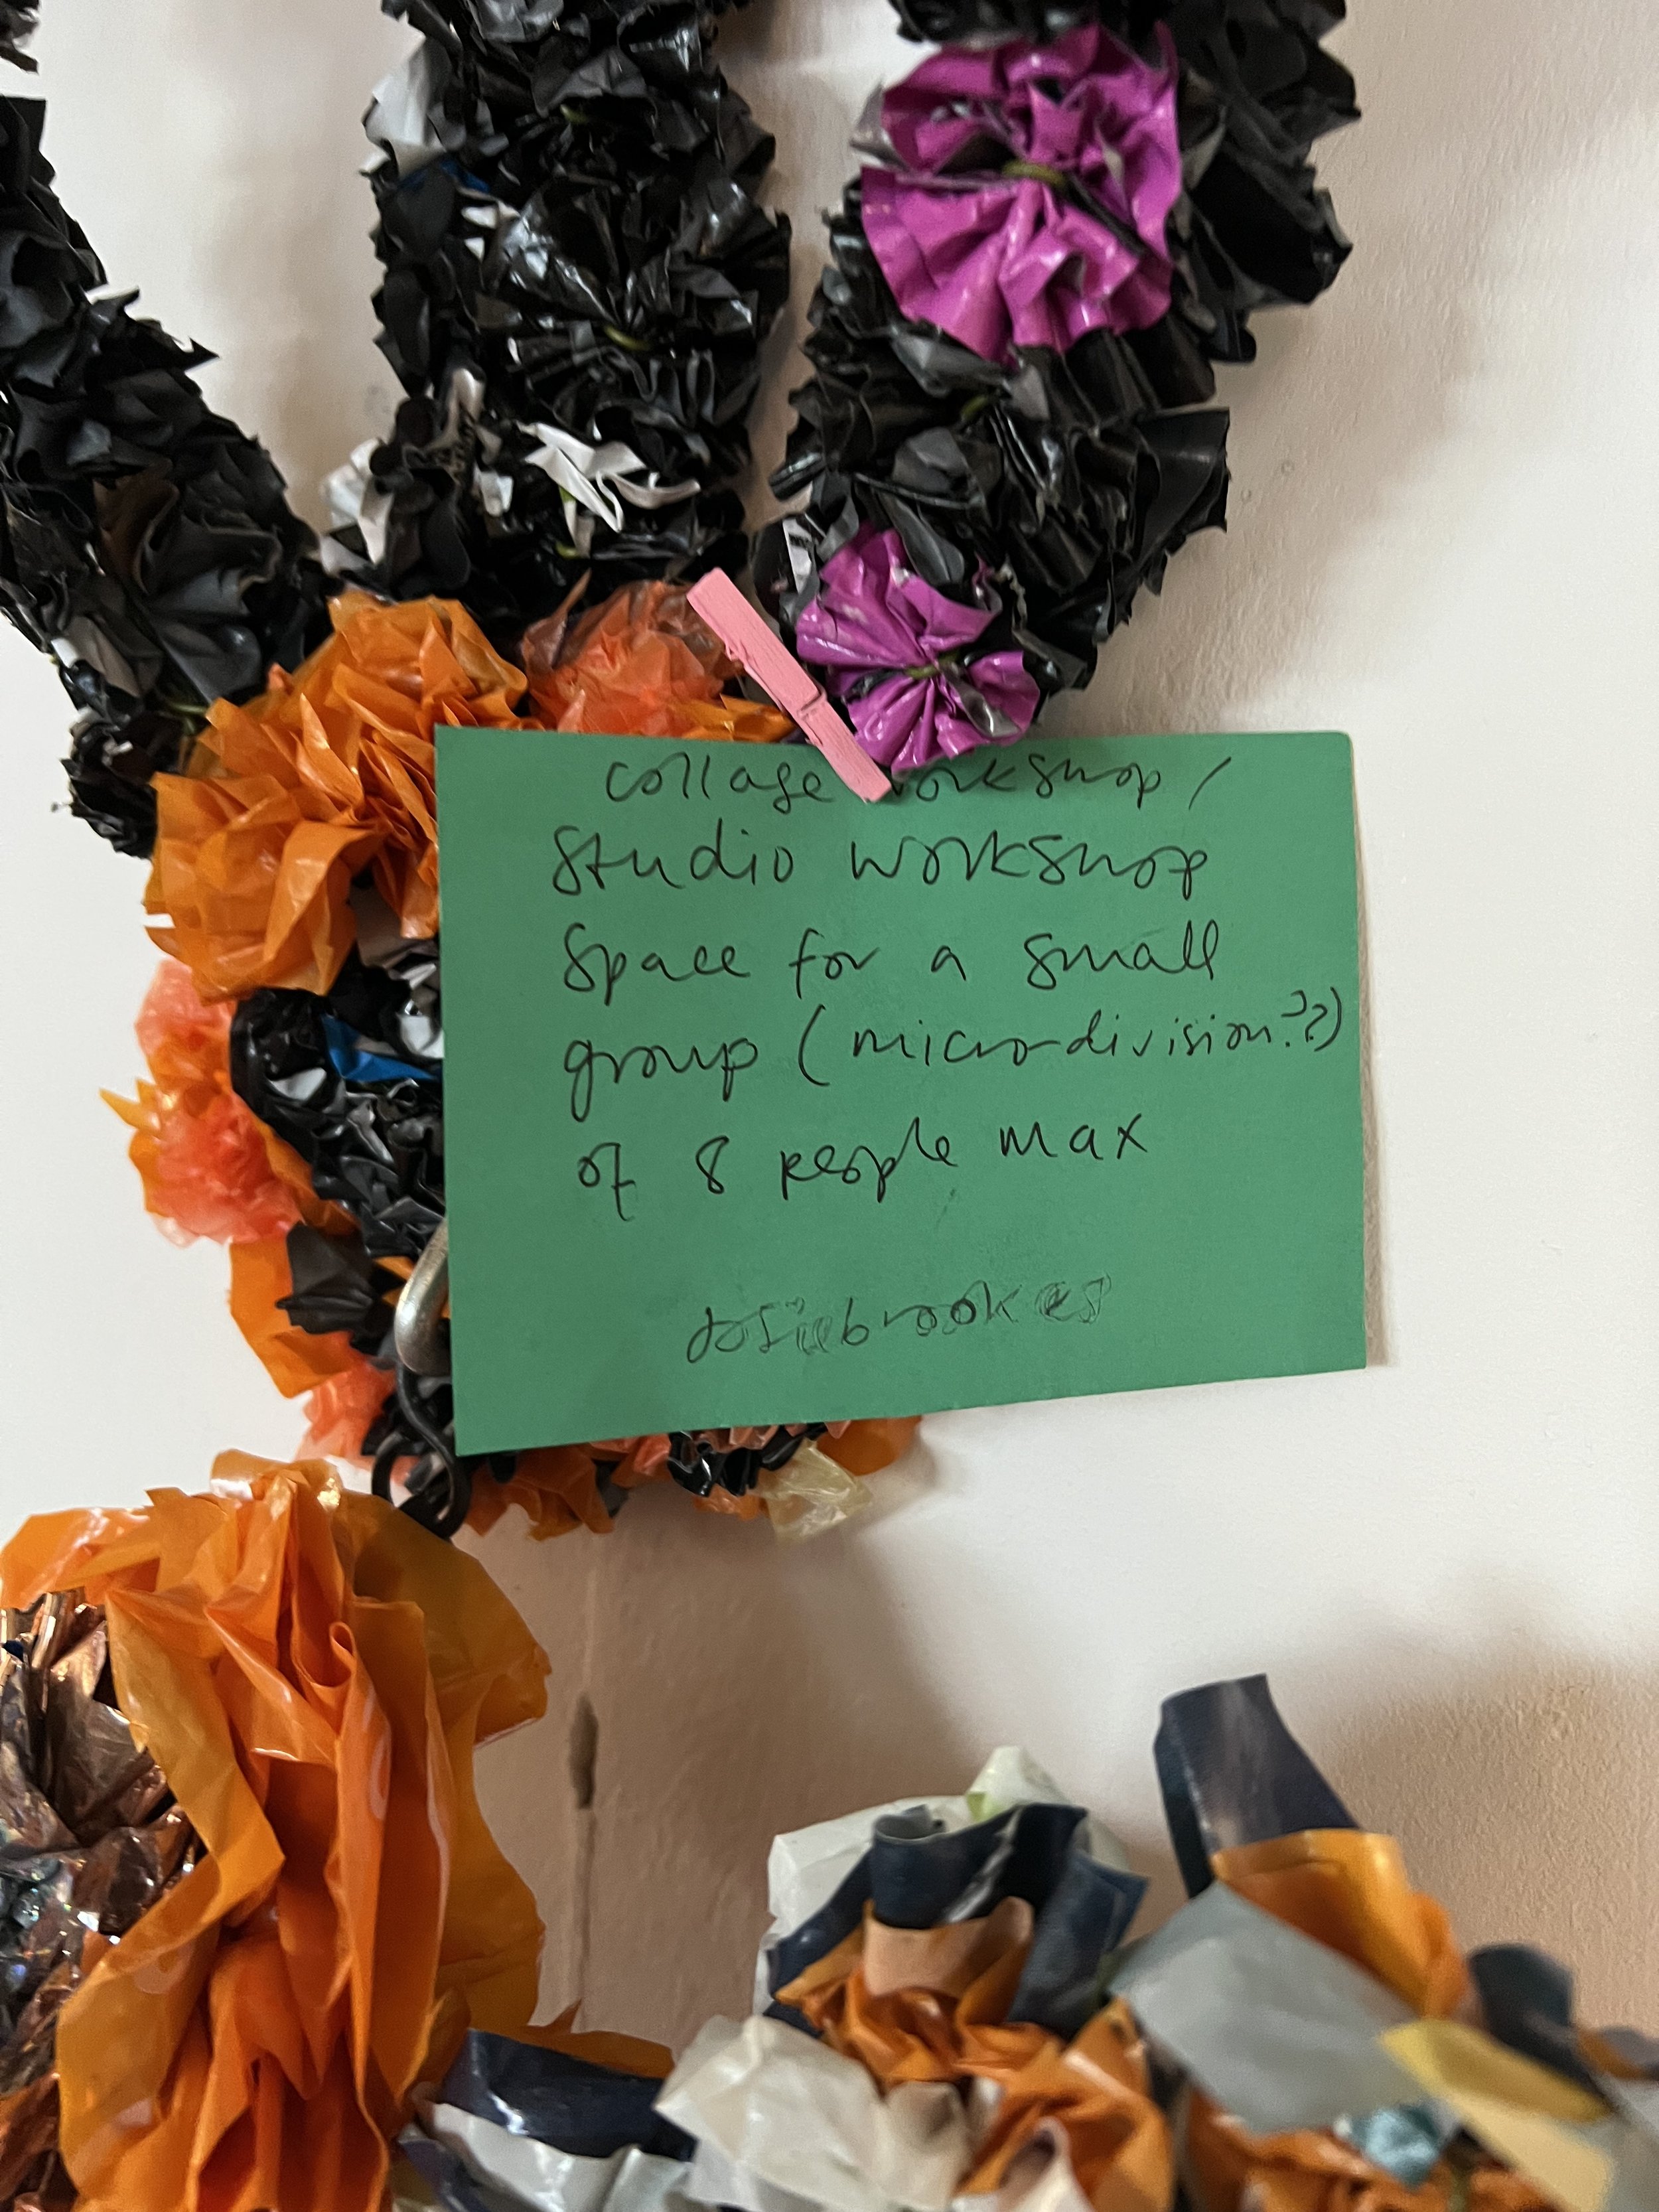 collage workshop /
Studio workshop
Space for a small
group (micro-division??)
of 8 people max